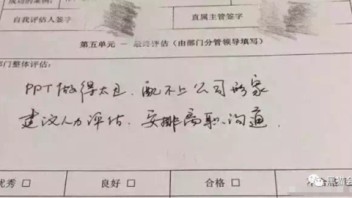 自我评估人签字
直属主管签字
第五单元 — 最终评估（由部门分管领导填写）
部门整体评估：
PPT做得太丑，配不上公司形象
建议人力评估，安排离职沟通。
优秀 □
良好 □
合格 □